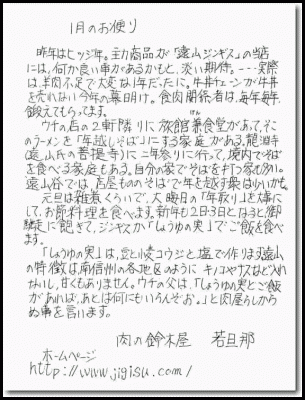 1月のお便り
昨年はヒツジ年。主力商品が「遠山ジンギス」の当店
には、何か良い事があるかもと、淡い期待。---実際
は、羊肉不足で大変な1年だったに。牛丼チェーンが牛丼
を売れない今年の幕明け。食肉関係者は、毎年毎年
鍛えてもらってます。
ウチの店の2軒隣りに旅館兼食堂があって、そこ
のラーメンを「年越しそば」にする家庭がある。龍淵寺
(遠山氏の菩提寺)に二年参りに行って、境内でそば
を食べる家庭もある。自分の家でそばを打つ家も多い。
遠山谷では、店屋もののそばで年を越す衆は少いかも。
元旦は雑煮くらいで、大晦日の「年取り」を嬉に
して、お節料理を食べます。新年も2日3日となると御
馳走に飽きて、ジンギスか「しょうゆの実」でご飯を食べ
ます。
「しょうゆの実」は、豆と麦コウジと塩で作ります。遠山
の特徴は南信州の各地区のように、キノコやウスなど入れ
ないし、甘くもありません。ウチの父は、「しょうゆの実とご飯
があれば、あとは何にもいらんぞお。」と肉屋らしから
ぬ事を言います。
肉の鈴木屋 若旦那
ホームページ
http://www.jigisu.com/